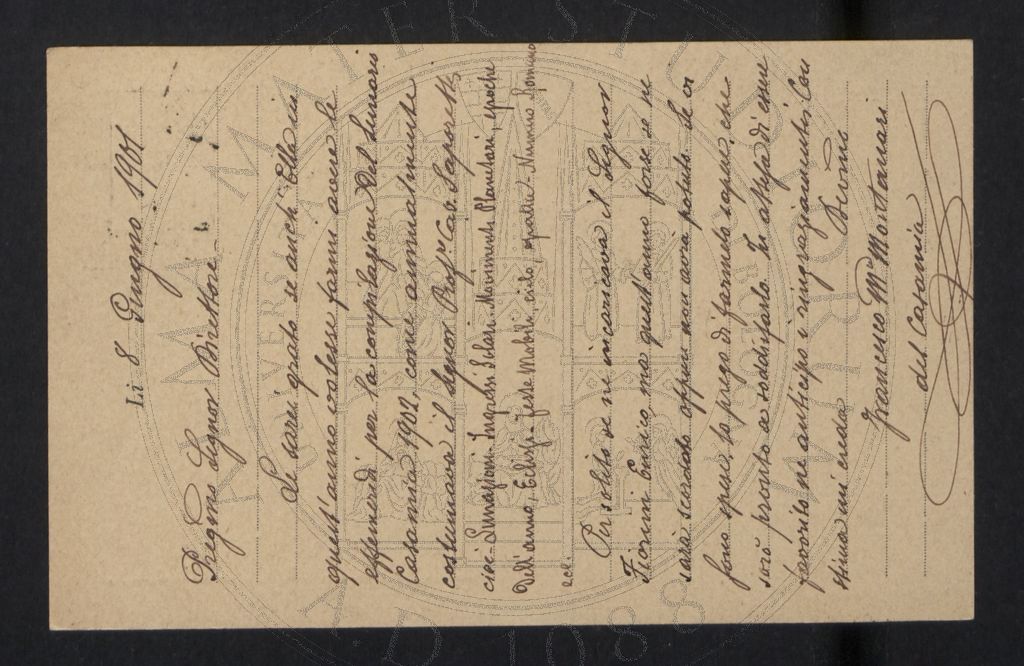 Li 8 Giugno 1901
Pregmo Signor Direttore
Le sarei grato se anch'Ella in
quest'anno volesse farmi avere le
effemeridi per la compilazione Del Lunario
Casamia 1902, come annualmente
costumava il Signor Profr Cav. Saporetti
cioè: Lunazioni Ingressi Solari. Movimento Planetari, epoche
Dell'anno, Eclissi. Feste Mobili, ciclo, epatte. Numero Romano
ecc.
Per solito se ne incaricava il Signor
Fiorini Enrico, ma quest'anno forse se ne
sarà scordato oppure non avrà potuto. Se vi
sono spese, la prego di farmelo sapere, che
sarò pronto a sodisfarlo. In attesa di esser
favorito ne anticipo i ringraziamenti. Con
stima mi creda Devmo
Francesco Ma Montanari
del Casamia
ALMA MATER STUDIORUM
A.D. 1088